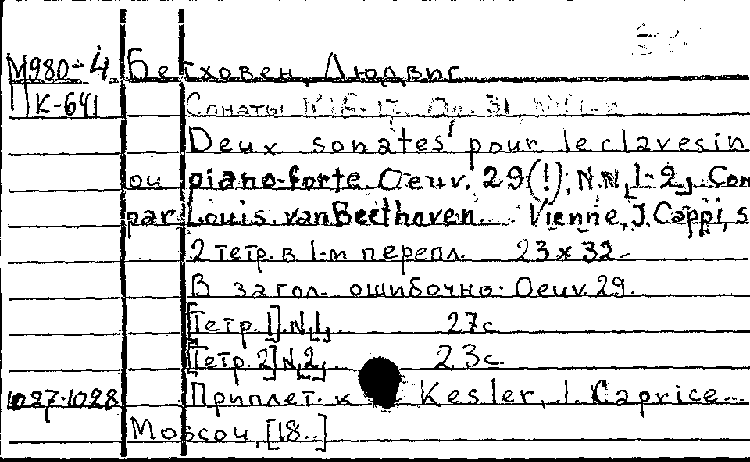 М980-4 Бетховен, Людвиг
К-641 Сонаты №16-17, Op. 31, №1-2
Deux sonates pour le clavesin
ou piano-forte. Oeuv. 29(!), N.N, 1-2, Com
par Louis van Beethoven... Vienne, J. Cappi, s
2 тетр. в 1-м перепл. 23 х 32.
В загол. ошибочно: Oeuv. 29.
[Тетр. 1]. N, 1, 27с
[Тетр. 2] N, 2, 23с
1027-1028 Приплет. к Kesler, J. Caprice...
Moscou, [18..]